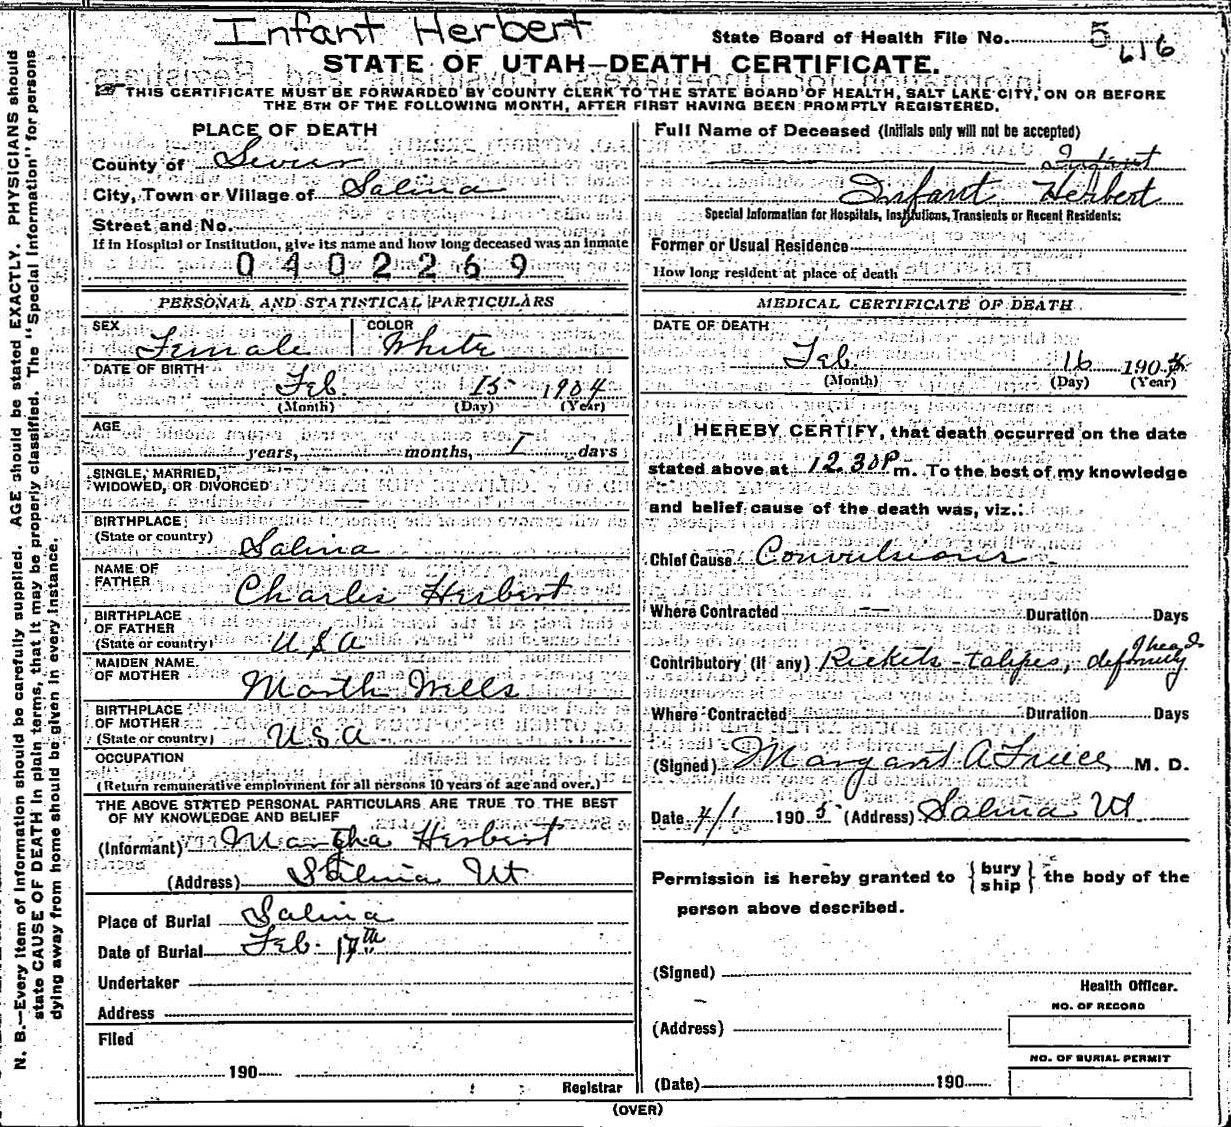 Infant Herbert
State Board of Health File No. 5 616
STATE OF UTAH—DEATH CERTIFICATE.
THIS CERTIFICATE MUST BE FORWARDED BY COUNTY CLERK TO THE STATE BOARD OF HEALTH, SALT LAKE CITY, ON OR BEFORE
THE 5TH OF THE FOLLOWING MONTH, AFTER FIRST HAVING BEEN PROMPTLY REGISTERED.
N. B.—Every item of Information should be carefully supplied. AGE should be stated EXACTLY. PHYSICIANS should
state CAUSE OF DEATH in plain terms, that it may be properly classified. The "Special Information" for persons
dying away from home should be given in every instance.
PLACE OF DEATH
County of Sevier
City, Town or Village of Salina
Street and No.
If in Hospital or Institution, give its name and how long deceased was an inmate
0402269
PERSONAL AND STATISTICAL PARTICULARS
SEX COLOR
Female White
DATE OF BIRTH
Feb 15 1904
(Month) (Day) (Year)
AGE
years, months, 1 days
SINGLE, MARRIED,
WIDOWED, OR DIVORCED —
BIRTHPLACE
(State or country) Salina
NAME OF
FATHER Charles Herbert
BIRTHPLACE
OF FATHER
(State or country) USA
MAIDEN NAME
OF MOTHER Marth Mells
BIRTHPLACE
OF MOTHER
(State or country) USA
OCCUPATION
(Return remunerative employment for all persons 10 years of age and over.)
THE ABOVE STATED PERSONAL PARTICULARS ARE TRUE TO THE BEST
OF MY KNOWLEDGE AND BELIEF
(Informant) Martha Herbert
(Address) Salina Ut
Place of Burial Salina
Date of Burial Feb. 17th
Undertaker
Address
Filed
190
Registrar
Full Name of Deceased (Initials only will not be accepted)
Infant
Infant Herbert
Special Information for Hospitals, Institutions, Transients or Recent Residents:
Former or Usual Residence
How long resident at place of death
MEDICAL CERTIFICATE OF DEATH
DATE OF DEATH
Feb. 16 190
(Month) (Day) (Year)
I HEREBY CERTIFY, that death occurred on the date
stated above at 12.30P m. To the best of my knowledge
and belief cause of the death was, viz.:
Chief Cause Convulsions
Where Contracted — Duration Days
Contributory (if any) Rickets - talipes, deformity
Where Contracted Duration Days
(Signed) Margaret A M. D.
Date 4/1 1905 (Address) Salina Ut.
Permission is hereby granted to {bury
ship} the body of the
person above described.
(Signed)
Health Officer.
NO. OF RECORD
(Address)
NO. OF BURIAL PERMIT
(Date) 190
(OVER)